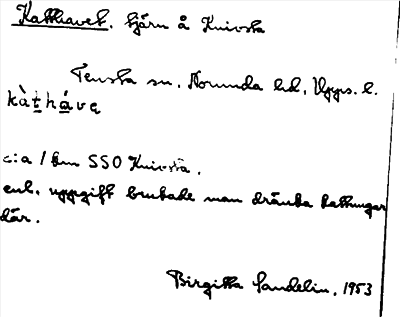 Katthavet, tjärn å Knivsta
Tensta sn. Norunda hd, Upps. l.
kàt̲há̲vę
c:a 1 km SSO Knivsta.
enl. uppgift brukade man dränka kattungar
där.
Birgitta Sandelin, 1953